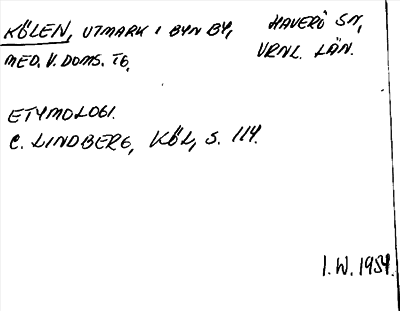 KÖLEN, UTMARK I BYN BY, HAVERÖ SN,
MED. V. DOMS. TG. VRNL. LÄN.
ETYMOLOGI.
C. LINDBERG, KÖL, S. 114.
I. W. 1954.